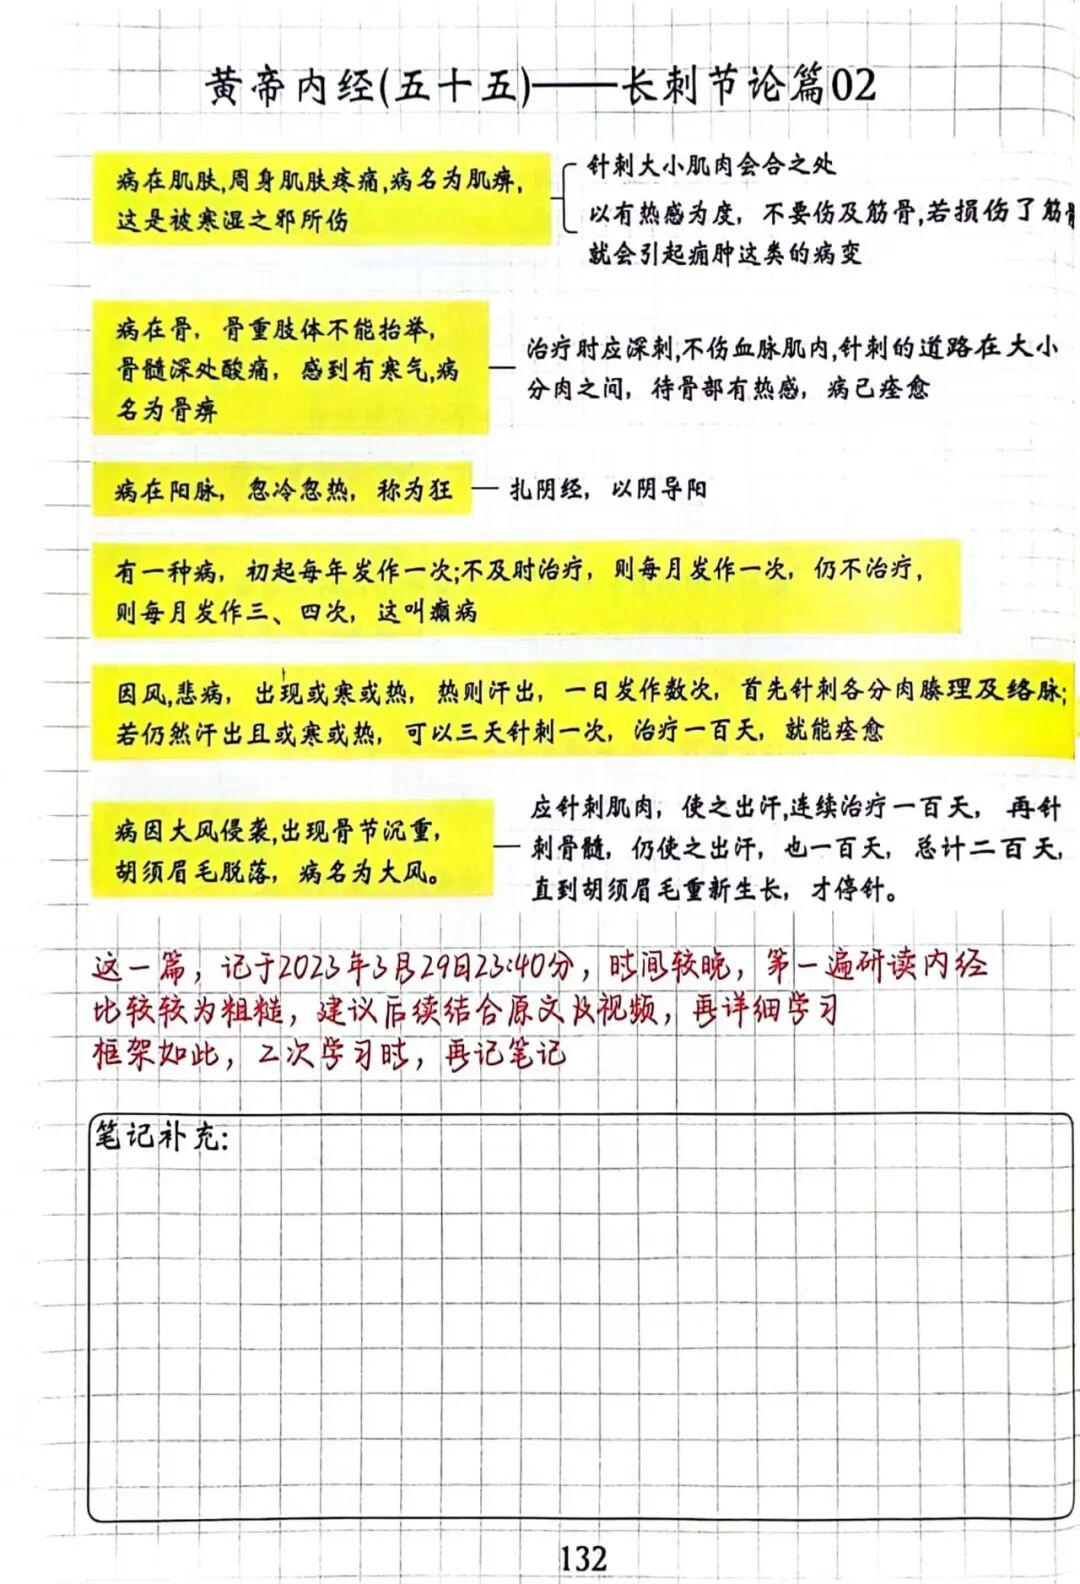 黄帝内经(五十五)——长刺节论篇02
病在肌肤,周身肌肤疼痛,病名为肌痹,
这是被寒湿之邪所伤
针刺大小肌肉会合之处
以有热感为度，不要伤及筋骨,若损伤了筋骨
就会引起痈肿这类的病变
病在骨，骨重肢体不能抬举，
骨髓深处酸痛，感到有寒气,病
名为骨痹
治疗时应深刺,不伤血脉肌肉,针刺的道路在大小
分肉之间，待骨部有热感，病已痊愈
病在阳脉，忽冷忽热，称为狂
扎阴经，以阴导阳
有一种病，初起每年发作一次;不及时治疗，则每月发作一次，仍不治疗，
则每月发作三、四次，这叫癫病
因风,悲病，出现或寒或热，热则汗出，一日发作数次，首先针刺各分肉腠理及络脉;
若仍然汗出且或寒或热，可以三天针刺一次，治疗一百天，就能痊愈
病因大风侵袭,出现骨节沉重，
胡须眉毛脱落，病名为大风。
应针刺肌肉，使之出汗,连续治疗一百天，再针
刺骨髓，仍使之出汗，也一百天，总计二百天,
直到胡须眉毛重新生长，才停针。
这一篇，记于2023年3月29日23:40分，时间较晚，第一遍研读内经
比较较为粗糙，建议后续结合原文及视频，再详细学习
框架如此，二次学习时，再记笔记
笔记补充:
132